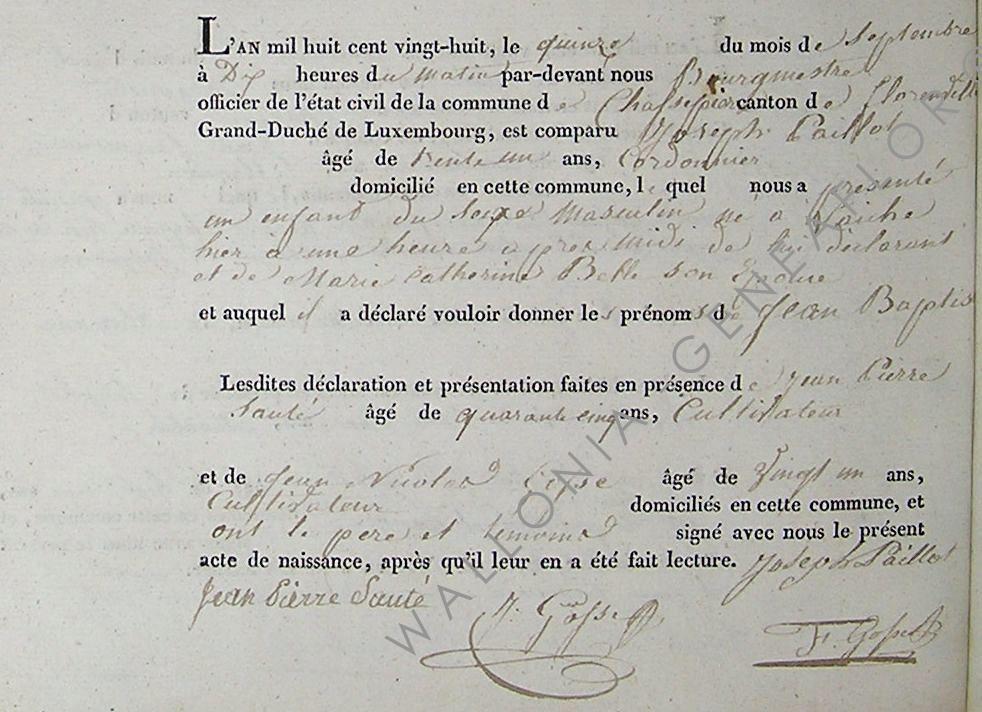 L'AN mil huit cent vingt-huit, le quinze du mois de Septembre
à Dix heures du matin par-devant nous Bourgmestre
officier de l'état civil de la commune de Chassepierre canton de florenville
Grand-Duché de Luxembourg, est comparu Joseph Paillot
âgé de trente un ans, Cordonnier
domicilié en cette commune, lequel nous a presenté
un enfant du sexe Masculin né a Laiche
hier à une heure apres midi de lui déclarant
et de Marie Catherine Belle son Epouse
et auquel il a déclaré vouloir donner les prénoms de Jean Baptis
Lesdites déclaration et présentation faites en présence de Jean Pierre
Sauté âgé de quarante cinq ans, Cultivateur
et de Jean Nicolas âgé de vingt un ans,
Cultivateur domiciliés en cette commune, et
ont le pere et temoins signé avec nous le présent
acte de naissance, après qu'il leur en a été fait lecture. Joseph Paillot
Jean Pierre Sauté J. Gosse F. Gosse
WALLONIA GENEAFLOR